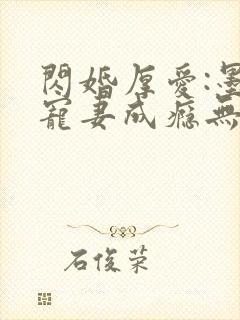 閃婚厚愛:墨
寵妻成癮無
石俊荣